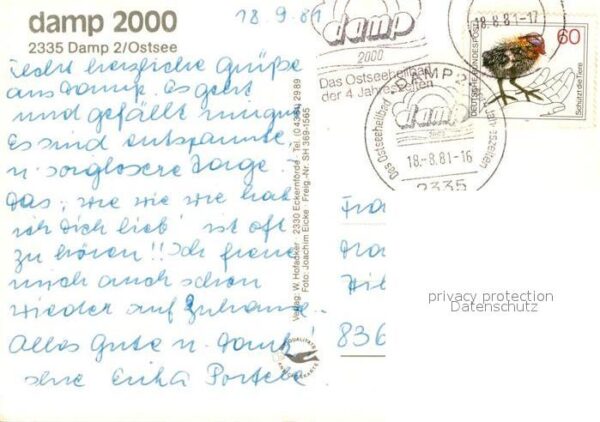 damp 2000
2335 Damp 2/Ostsee
18.9.81
recht herzliche Grüße
aus Damp. Es geht
und gefällt
Es sind entspannte
u. sorglosere Tage.
Das, wie wie hab
ich dich lieb' ist oft
zu hören!! Ich freue
mich auch schon
wieder auf Zuhause.
Alles Gute u. Dank!
Erika
Verlag: W. Hofacker · 2330 Eckernförde · Tel. (04351) 2989
Foto: Joachim Eicke · Freig.-Nr. SH 369-1565
QUALITÄTS
damp
2000
Das Ostseeheilbad
der 4 Jahreszeiten
18.-8.81-17
DEUTSCHE BUNDESPOST
60
Schützt die Tiere
DAMP 2
Das Ostseeheilbad
damp
Jahreszeiten
18.-8.81-16
2335
Fra
Hil
836
privacy protection
Datenschutz